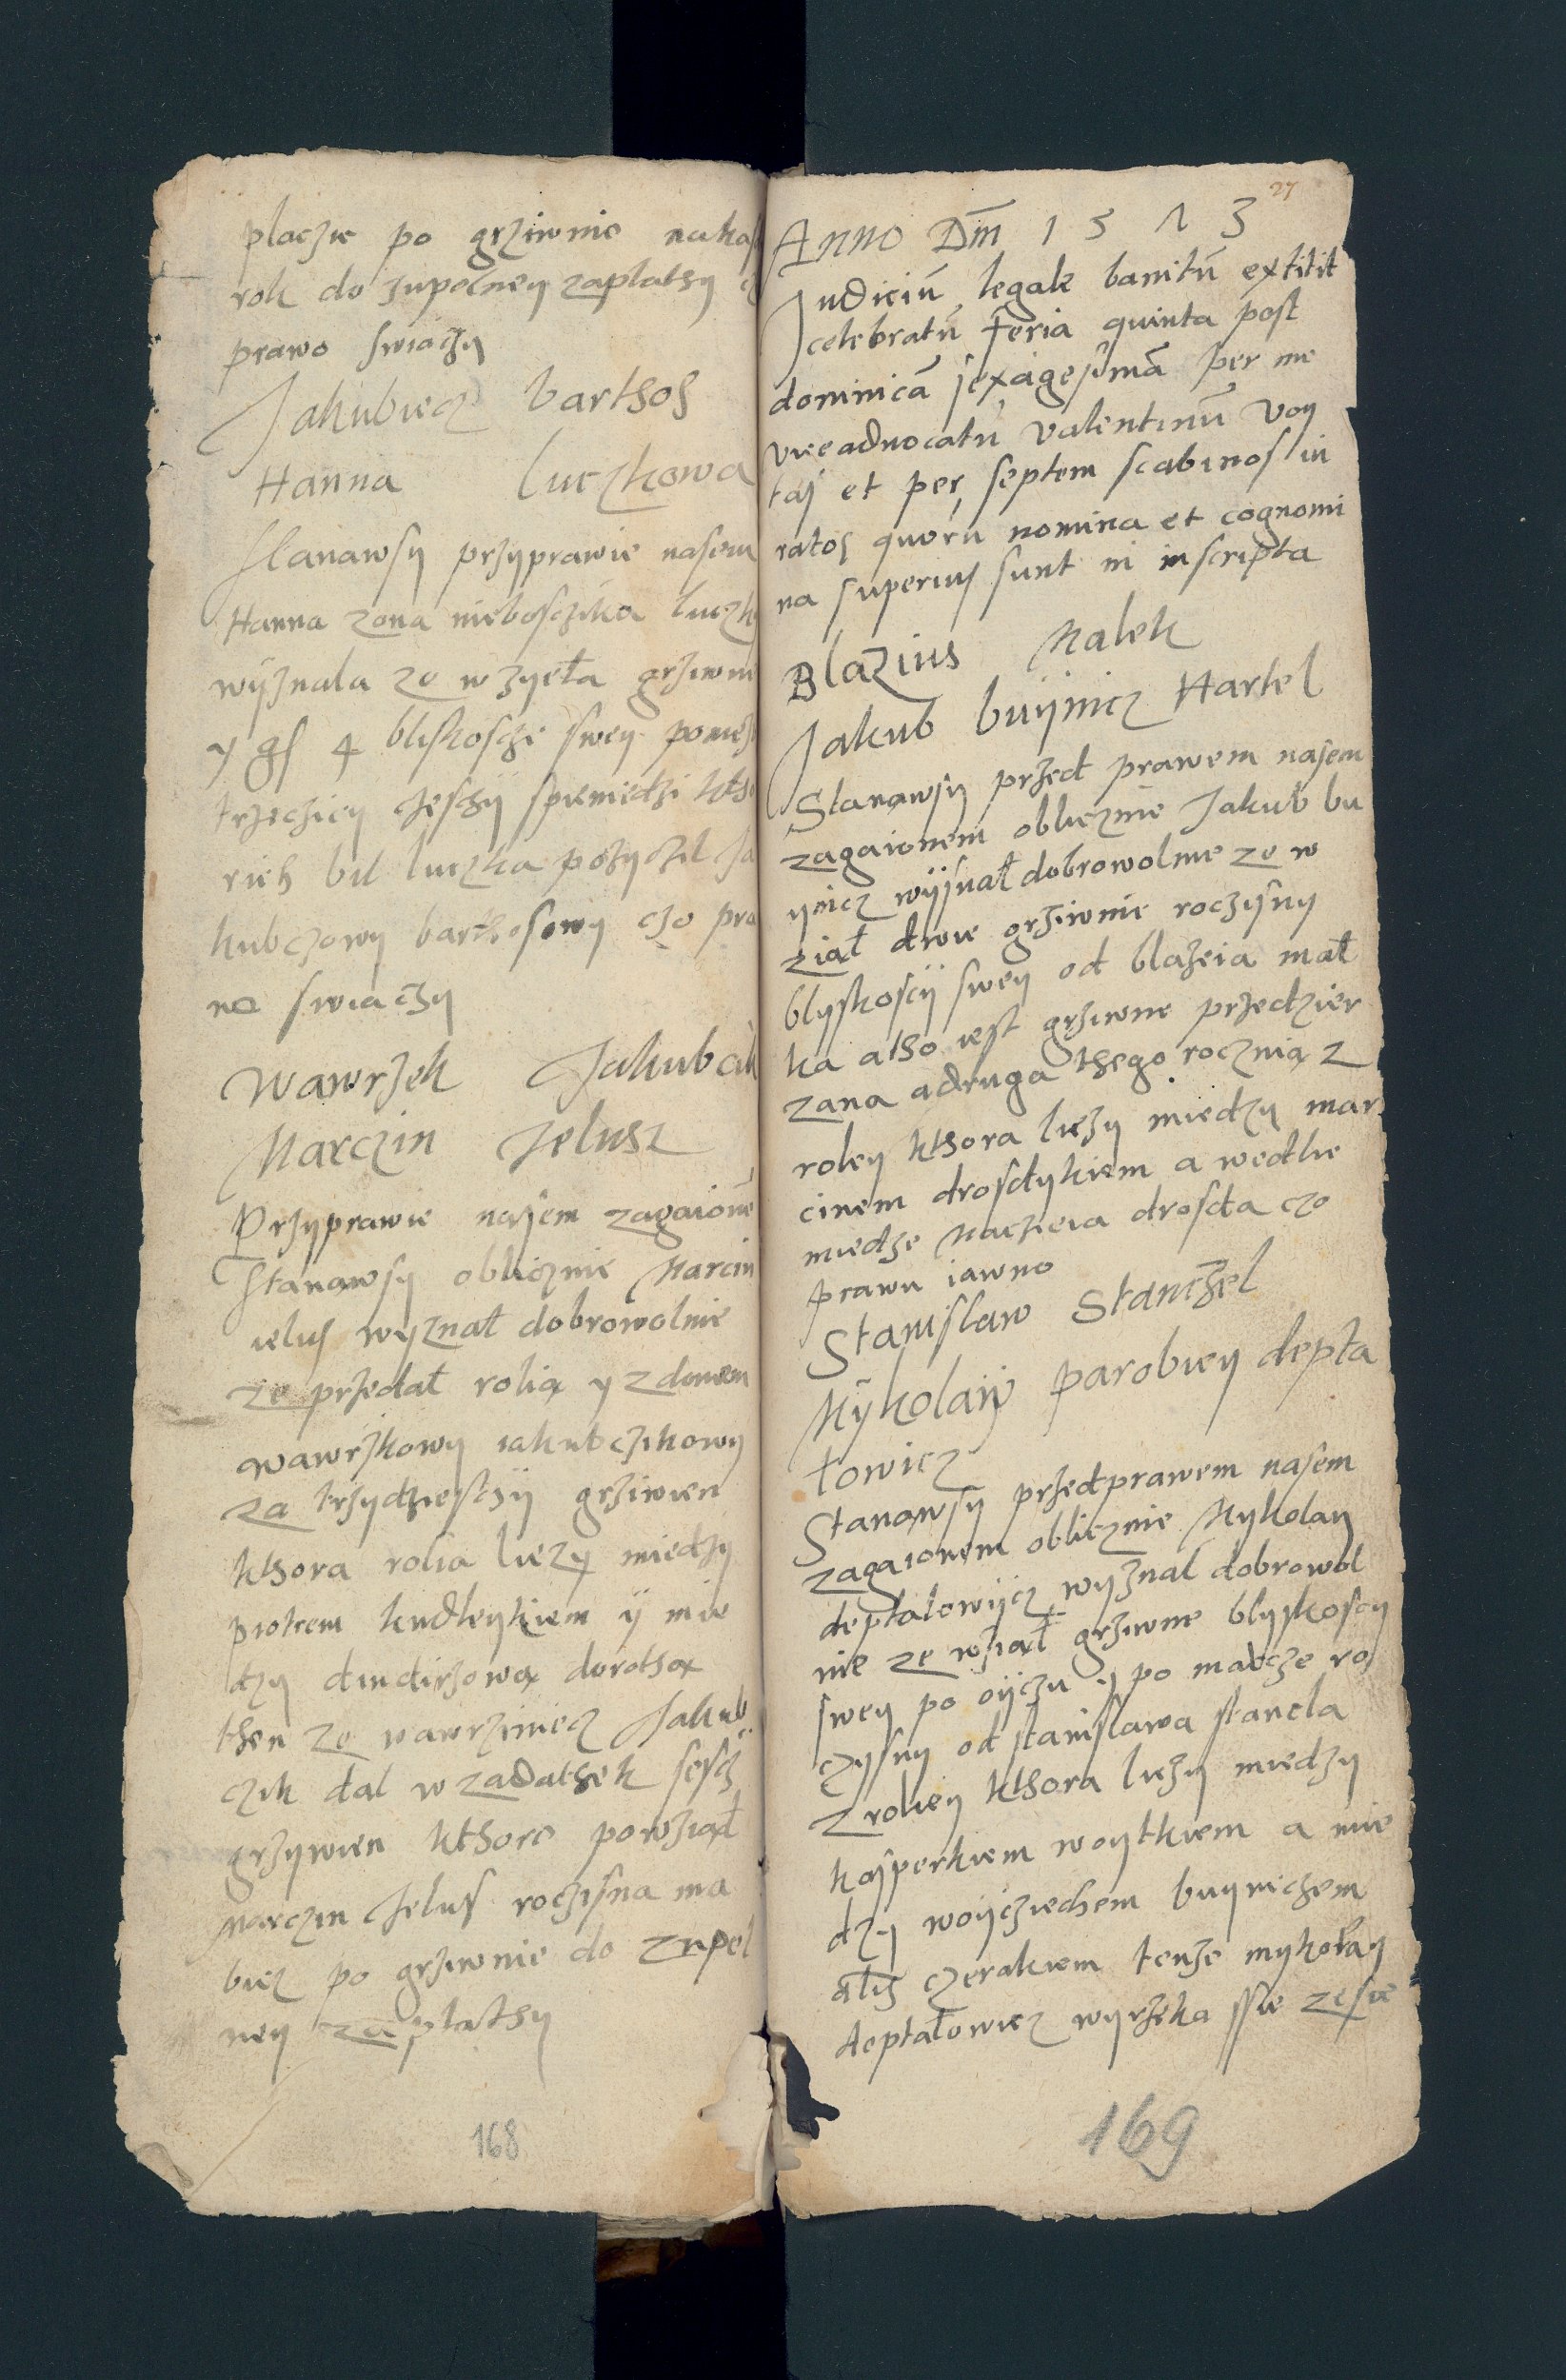 placzie po grziwnie na kas
rok do zupelney zaplathy
prawo swiaczy
Jakubiecz barthos
Hanna luczkowa
Stanawsy przyprawie nasem
Hanna zona nieboszika luczk
wyznala ze wzyeła grziwni
y gs 4 bliskosczi swey
trzecziey czesczy spieniedzi ktho
rich bil luczka pozyczil Ja
kubczowy barthosowy czo pra
wo swiaczy
Wawrzek Jakubcik
Marczin Jelusz
Przyprawie nasem zagaione
Stanawsy oblicznie Marcin
ielus wyznał dobrowolnie
ze przedał rolią y z domem
wawrzkowy iakubczikowy
za trzydziesczy grziwien
kthora rolia liezy miedzy
piotrem kudleykiem y mie
dzy dindirzową dorothą
then ze wawrziniecz Jakub
czik dal w zadathek sescz
grzywien kthore powziął
Marczin Jelus roczisna ma
bicz po grziwnie do zupel
ney zaplathy
168
27
Anno Dm̄ 1573
Judiciū legale banitū extitit
celebratū feria quinta post
dominicā sexagesimā per me
viceadvocatū valentinū Voy
tas et per septem scabinos iu
ratos quorū nomina et cognomi
na superius sunt in inscripta
Blazius Malek
Jakub buynicz Hartel
Stanawsy przed prawem nasem
zagaionem oblicznie Jakub bu
ynicz wyznał dobrowolnie ze w
ziął dwie grziwnie roczysny
blyskoscy swey od blazeia mał
ka atho iest grziwne przedzier
zana a druga thego rocznią z
roley kthora liezy miedzy mar
cinem drosdykiem a wedlie
miedze Maczieia drosda czo
prawu iawno
Stanislaw Stanczel
Mykolay parobiey depta
łowicz
Stanawsy przed prawem nasem
zagaionem oblicznie Mykolay
deptalowycz wyznal dobrowol
nie ze wziął grziwne blyskoscy
swey po oyczu y po matcze ro
czysny od stanislawa stancla
z roliey kthora liezy miedzy
kasperkiem woytkiem a mie
dzy woyciechem buyniczem
alīs czerakiem tenze mykołay
deptałowicz wyrzeka ssie ze sie
169